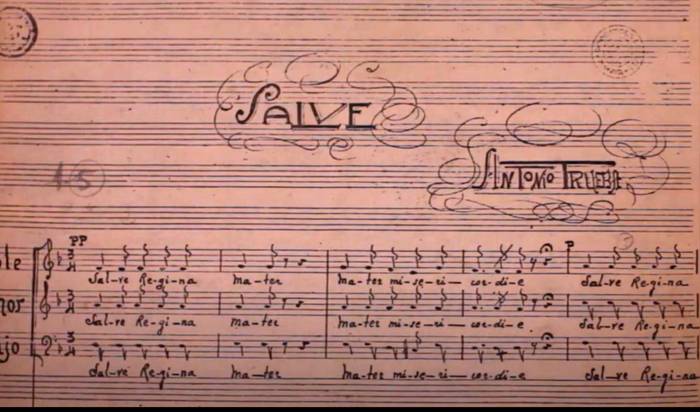 SALVE
ANTONIO TRUEBA
15
PP P
Sal-ve Re-gi-na ma-ter ma-ter mi-se-ri-cor-di-e Sal-ve Re-gi-na
Sal-ve Re-gi-na ma-ter ma-ter mi-se-ri-cor-di-e Sal-ve Re-gi-na
jo
Sal-ve Re-gi-na ma-ter ma-ter mi-se-ri-cor-di-e Sal-ve Re-gi-na